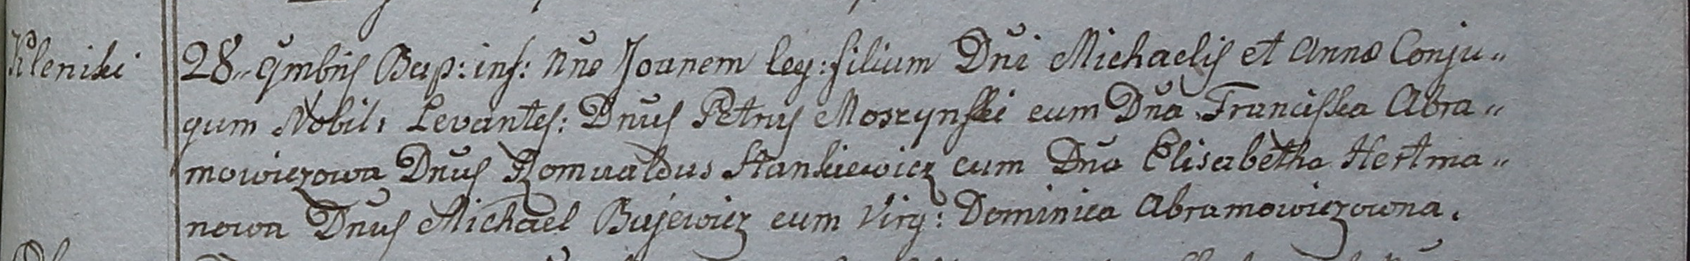 Kleniki
28 9mbris Bap: inf: nne Joanem leg: filium Dni Michaelis et Annæ Conju„
gum Nobil: Levantes: Dnus Petrus Moszynski cum Dna Franciska Abra„
mowiczowa Dnus Romualdus Stankiewicz cum Dna Elisabetha Hertma„
nowa Dnus Michael Bujewicz cum Virg: Dominica Abramowiczowna.